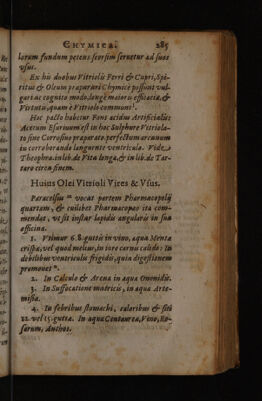 CHYMICA. 285
lorum fundum petens seorsim seruetur ad suos
vsus.
Ex his duobus Vitriolis Ferri & Cupri, Spi-
ritus & Oleum præparari Chymicè possunt vul-
gari ac cognito modo, longè maioris efficaciæ, &
Virtutis, quam è Vitriolo communi.
Hoc pacto habetur Fons acidus Artificialis:
Acetum Esurinum est in hoc Sulphure Vitriola-
to sine Corrosiuo præparato, perfectum arcanum
in corroborando languente ventriculo. Vide
Theophra. in lib. de Vita longa, & in lib. de Tar-
taro circa finem.
Huius Olei Vitrioli Vires & Vsus.
Paracelsus vocat partem Pharmacopolij
quartam, & cuilibet Pharmacopœo ita com-
mendat, vt sit instar lapidis angularis in sua
officina.
1. Vtimur 6. 8. guttis in vino, aqua Mentæ
crispæ, vel quod melius, in iure carnis calido: In
debilibus ventriculis frigidis, quia digestionem
promouet.
2. In Calculo & Arena in aqua Ononidis.
3. In Suffocatione matricis, in aqua Arte-
misiæ.
4. In febribus stomachi, caloribus & siti
12. vel 15. gutta. In aqua Centaurea, Vino, Ro-
sarum, Anthos.